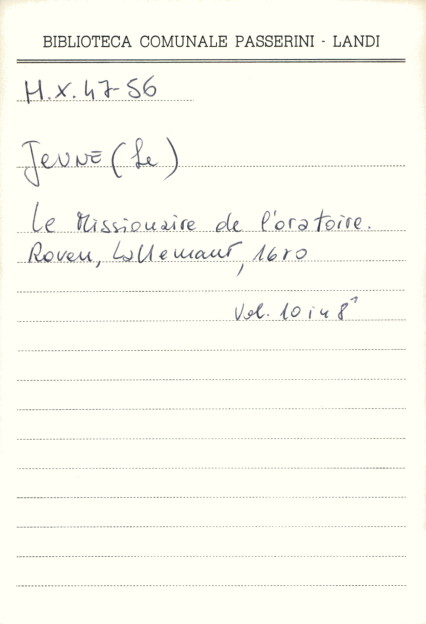 BIBLIOTECA COMUNALE PASSERINI - LANDI
H.X.47-56
JEUNE (Le)
Le Missionaire de l'oratoire.
Roven, Lallemant,
Vol. 10 in 8°